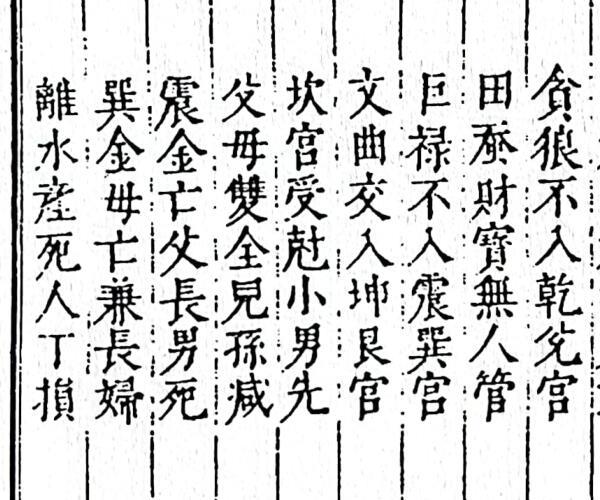 貪狼不入乾兊宫
田蚕財寶無人管
巨禄不入震巽宫
文曲交入坤艮宫
坎宫受尅小男先
父母雙全見孫减
震金亡父長男死
巽金母亡兼長婦
離水産死人丁損